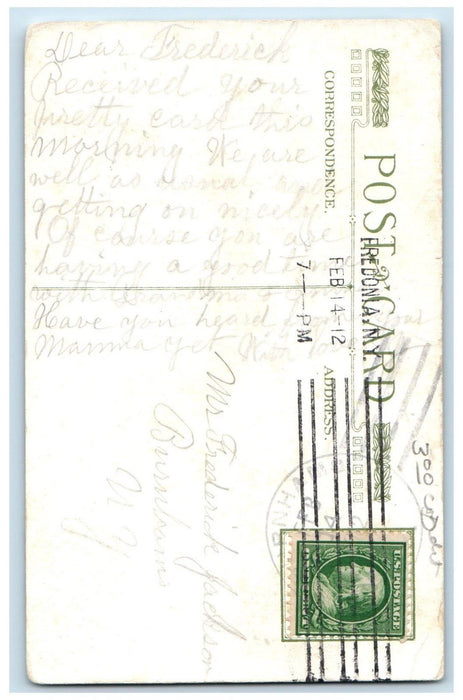 Dear Frederick
Received your
pretty card this
morning We are
well as usual and
getting on nicely
Of course you are
having a good time
with Grandma &
Have you heard from your
Mamma yet With love
POST CARD
CORRESPONDENCE.
ADDRESS.
FREDONIA, N.Y.
FEB 14-12
7 - PM
Mr Frederick Jackson
Burnhams
N Y
U.S. POSTAGE
300